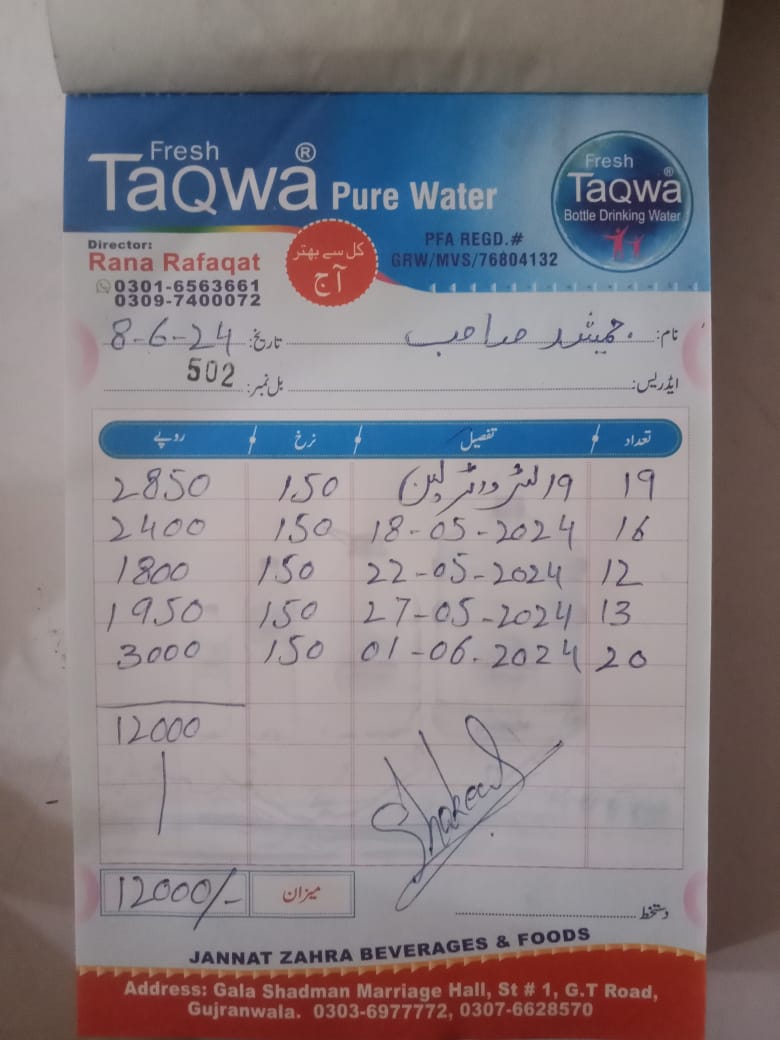 Fresh
TaQwa ® Pure Water
Fresh
TaQwa ®
Bottle Drinking Water
Director:
Rana Rafaqat
0301-6563661
0309-7400072
کل سے بہتر
آج
PFA REGD.#
GRW/MVS/76804132
نام: جمشید صاحب تاریخ: 8-6-24
ایڈریس: بل نمبر: 502
تعداد تفصیل نرخ روپے
19 19 لٹر واٹر 150 2850
16 18-05-2024 150 2400
12 22-05-2024 150 1800
13 27-05-2024 150 1950
20 01-06-2024 150 3000
12000
Shakeel
میزان 12000/-
دستخط
JANNAT ZAHRA BEVERAGES & FOODS
Address: Gala Shadman Marriage Hall, St # 1, G.T Road,
Gujranwala. 0303-6977772, 0307-6628570